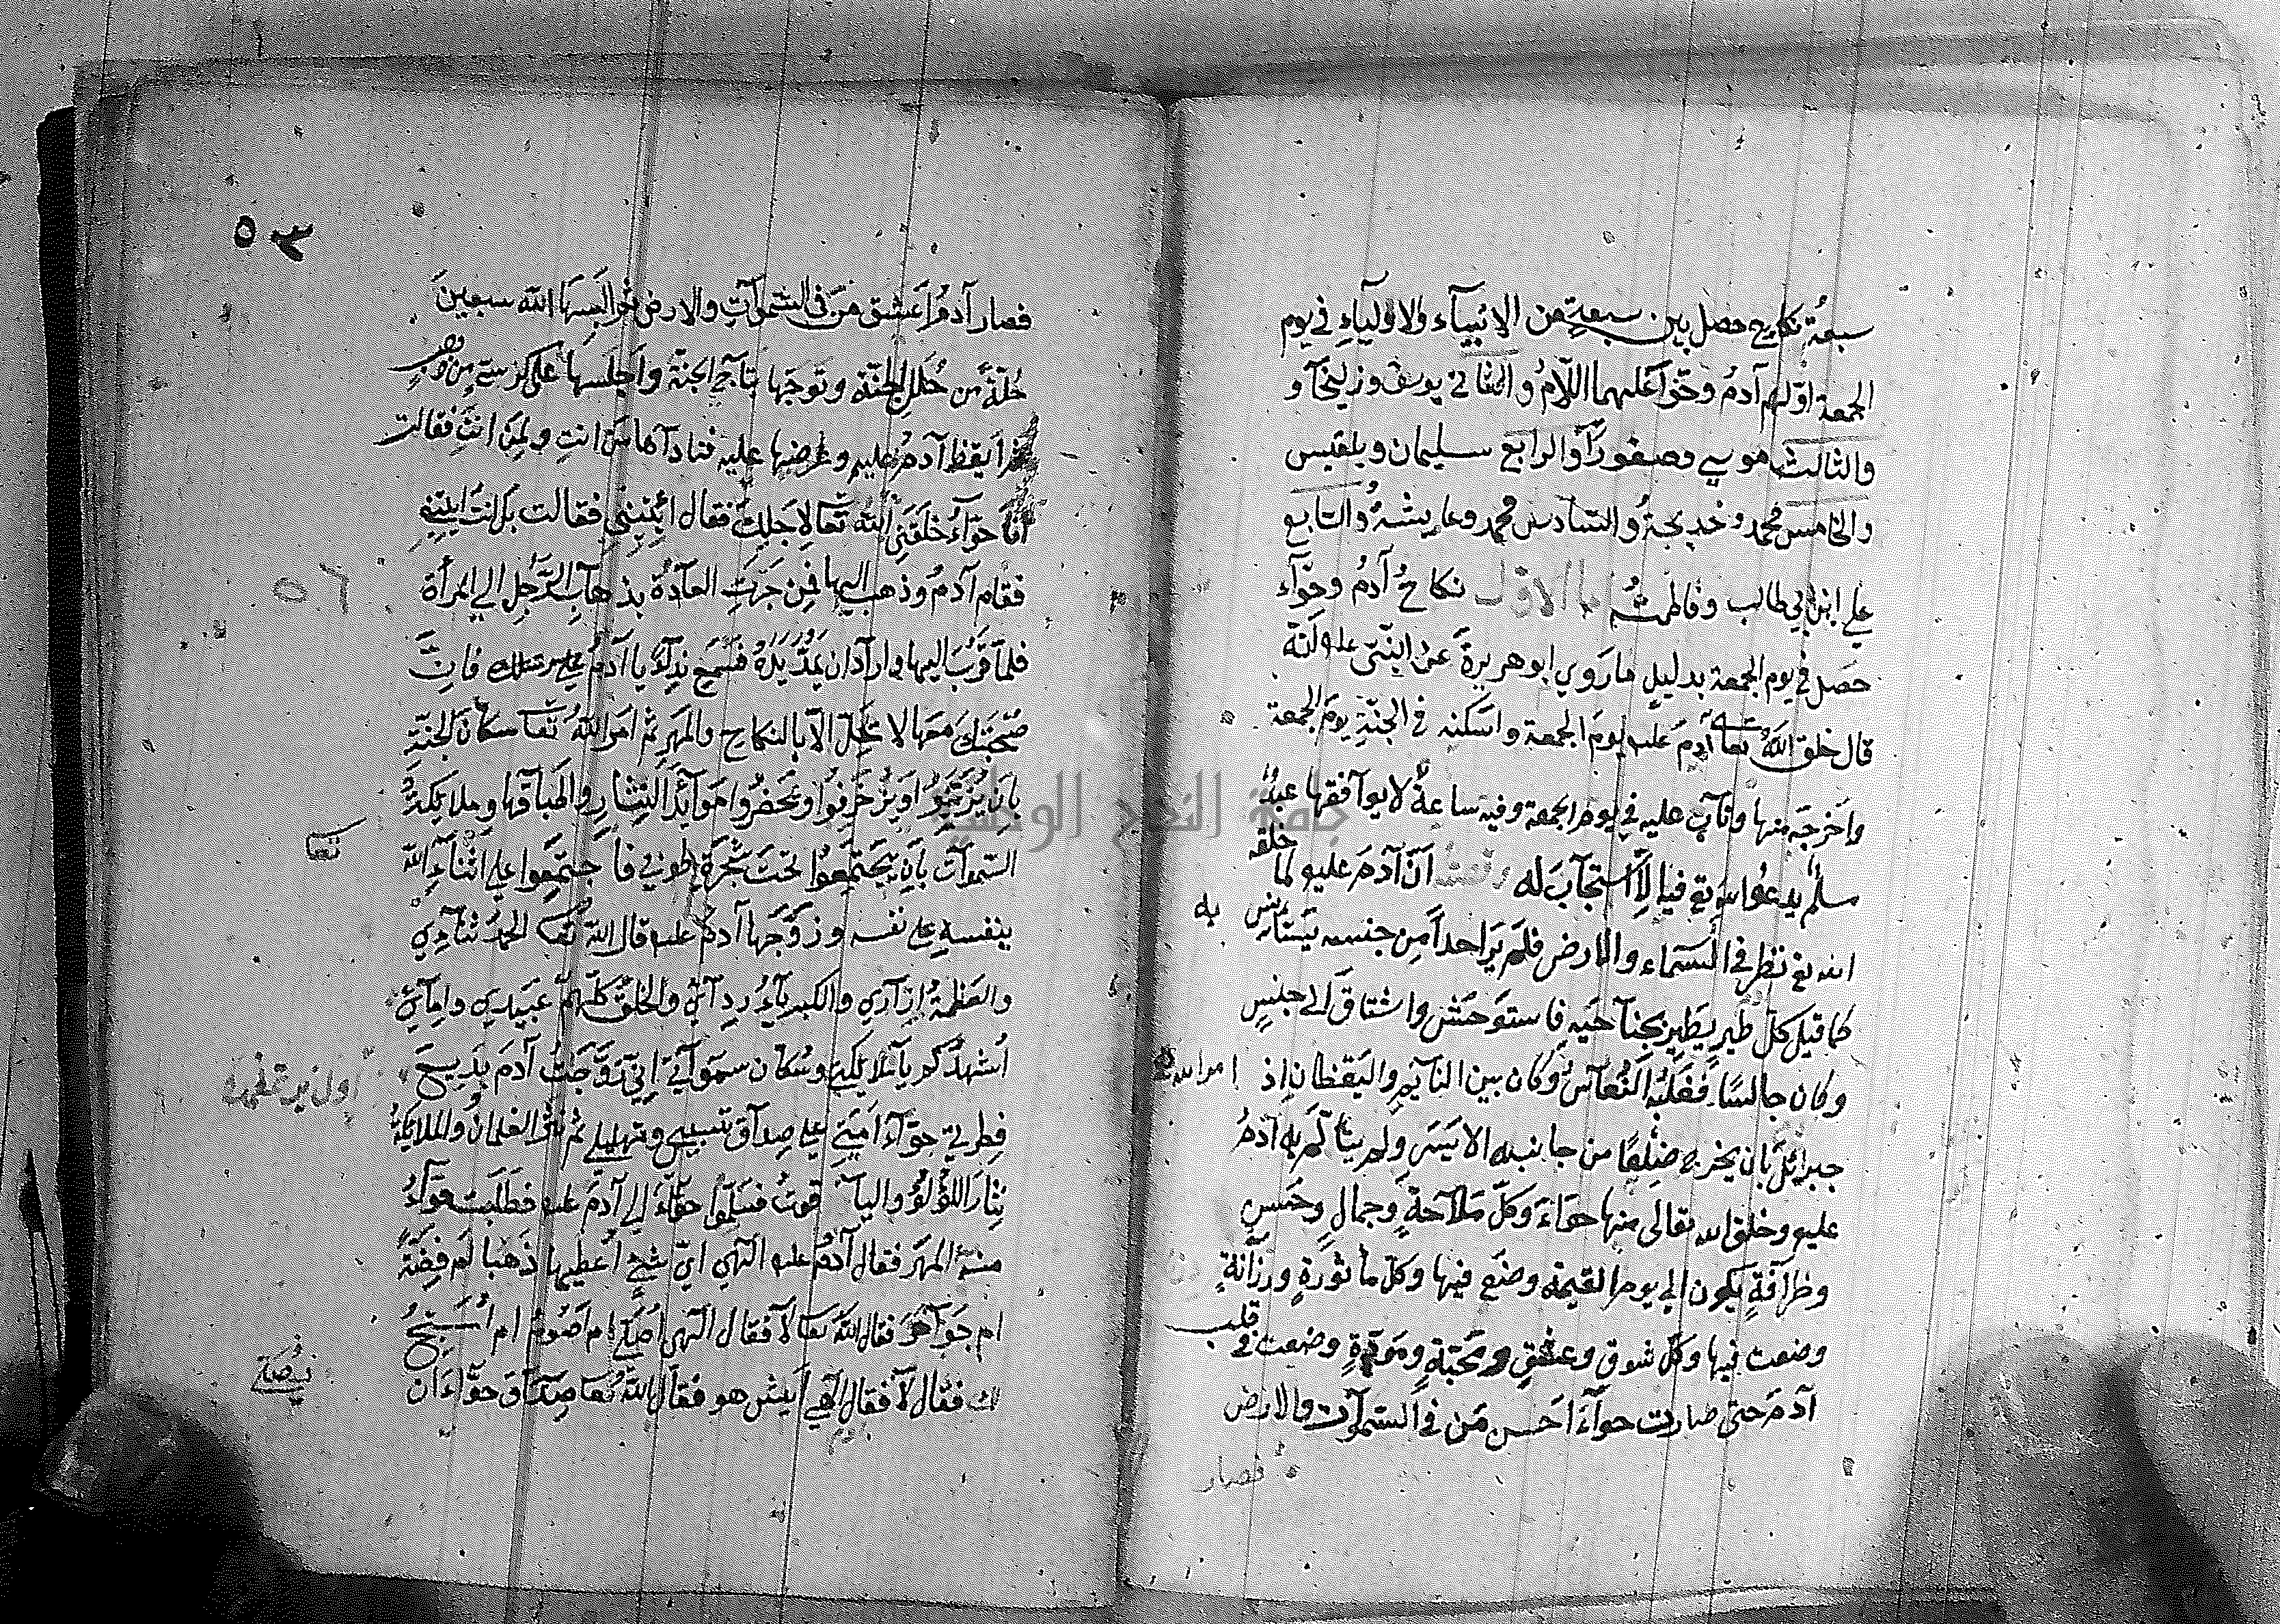 سبعةُ نكاح حصل بين سبعةٍ من الانبياء والاولياءِ في يوم
الجمعة اوّلهم آدمُ وحوّا عليهما اللّامُ والثاني يوسف وزليخا و
والثالث موسي وصفورّا والرابع سليمان وبلقيس
والخامس محمد وخديجةُ والسّادس محمد وعايشةُ والسّابع
علي ابن ابي طالب وفاطمةُ اما الاول نكاحُ آدمُ وحوّاء
حصل في يوم الجمعة بدليلِ ما روي ابو هريرة عن النبّي عليه انّه
قال خلق اللّهُ تعا آدم عليه يومَ الجمعة واسكنه في الجنّةِ يومَ الجمعة
واَخرجَه منها وتابَ عليه في يوم الجمعة وفيه ساعةٌ لا يوآفقها عبدٌ
سلمٌ يدعُوا الله تع فيها الّا استجابَ له اَنّ آدمَ عليه لمّا خلقه
الله تع نظر في السّمآء والارض فلم يَرَ احداً مِن جنسه يَستَأنِس به
كما قيل كلّ طيرٍ يَطير بجناحَيه فاستوحَش واشتاقَ الي جنسٍ
وكان جالسًا فغلبَه النُّعاسُ وكان بين النآئِم واليَقظان اِذ امر الله
جبرائيل بان يخرج ضِلعًا من جانبه الايسَر ولم يتألّم به آدمُ
عليه وخلق الله تعالى منها حوّاءَ وكلّ مَلاحةٍ وجمالٍ وحُسنٍ
وظرافةٍ يكون الي يوم القيمة وضَع فيها وكلّ ما ثورةٍ ورزانةٍ
وضعت فيها وكلّ شوق وعشقٍ ومحبّةٍ ومودّةٍ وضعت في قلب
آدمَ حتي صارت حوآءَ احسن مَن في السّموآت والارض
فصار
٥٣
فصار آدمُ اَعشق مَن في السّموآتِ والارض ثم البسَها اللّه سبعينَ
حُلّةً من حُلَلِ الجنّة وتوجَها بتاجِ الجنّة واَجلَسها على كرسيّ من ذهب
ثم ايقظ آدمُ عليه وعرضها عليه فناداها مَن انتِ ولِمَن انتِ فقالت
انا حوّاءُ خلقَني اللّه تعا لاجلِكَ فقال ائتِيني فقالت بل انت ايتني
فقام آدمُ وذهب اليها فمِن جَرَت العادةُ بذهابِ الرّجُلِ الي المرأة
٥٦
فلمّا قَرُبَ اليها وارادَ ان يمدّ يَدَهُ فسمِع نِداءً يا آدمُ علي رسلك فانّ
صُحبتَك معَها لا تحِلّ الّا بالنكاح والمَهرِ ثم امرَ اللّهُ تعا سكّانَ الجنّةِ
بان يُزيّنوا ويُزخرِفوا ويَحضُروا مَوآئِدَ النِثارِ والَطباقَها وملايكةُ
السّموآت بأن يجتمعُوا تحتَ شجرةِ طوبي فاجتمعوا علي اثنآءِ اللّه
بنفسهِ علي نفسه وزوّجَها آدمَ عليه قال اللّهُ تعا الحمدُ ثنآءي
والعَظمةُ اِزاري والكبريآءُ رِدآئي والخلقُ كلّهم عَبيدي وامآئي
اُشهدُكم يا ملايكتي وسُكّان سموآتي اِنّي زوّجتُ آدمَ بَديعَ
فِطرتي حوّآءَ اَمَتي علي صِداق تسبيحي وتهليلي ثم نثرَ الغلمانُ والملايكةُ
نِثارَ اللّؤلؤ واليآقوت فسلّموا حوّآءَ الي آدمَ عليه فطلبَت حوّآءُ
منهُ المهرَ فقال آدمُ عليه الٰهي ايّ شيءٍ اُعطيها ذهَبا ام فِضّةً
ام جَوآهرَ فقال اللّهُ تعا لا فقال الٰهي اُصلّي ام اَصُومُ ام اُسَبّحُ
لك فقال لا فقال الٰهي اَيش هو فقال اللّهُ تعا صِداقَ حوّآءَ ان